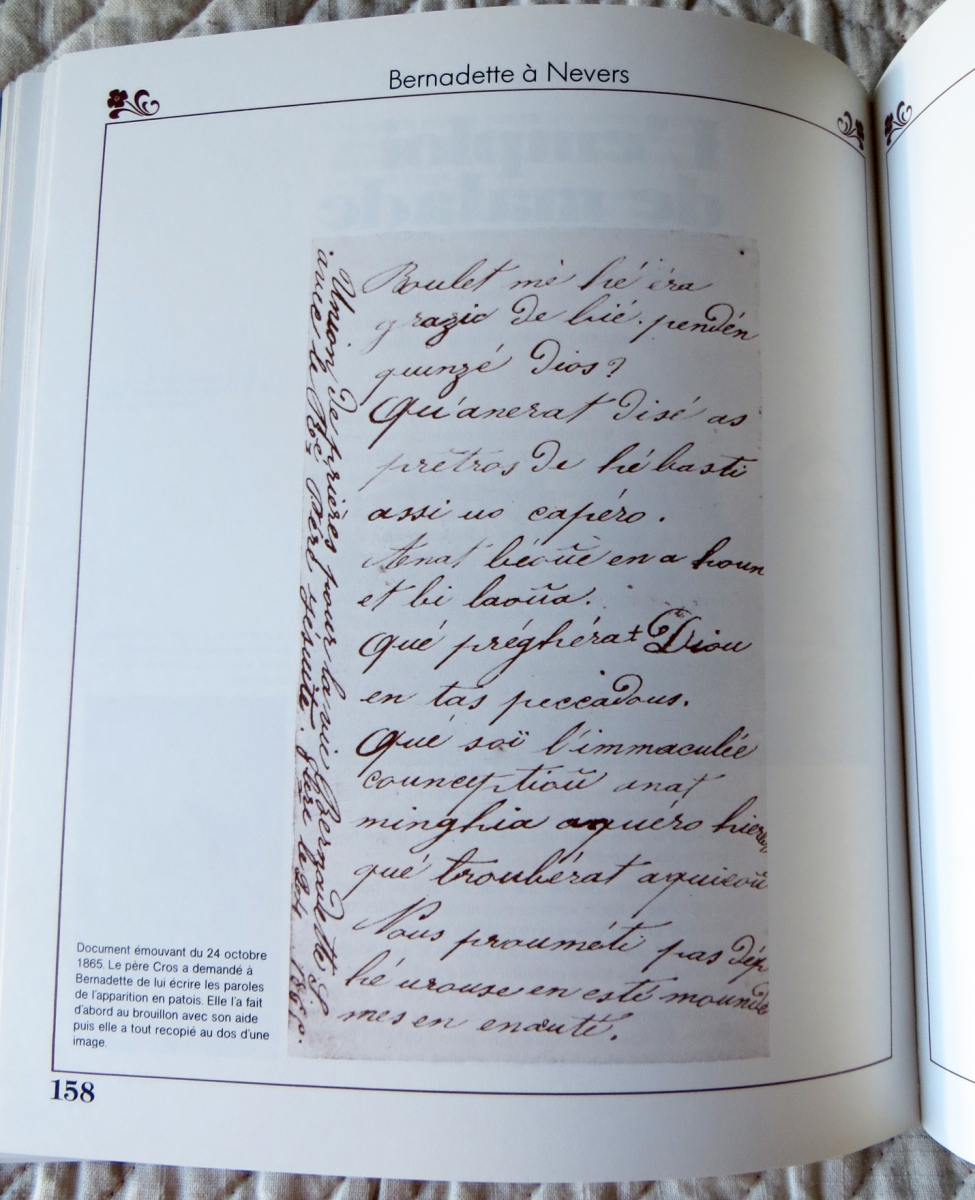 Bernadette à Nevers
Boulet mé hé éra
grazio de bié. pendén
quinzé dios?
Qu'anerat disé as
prêtros de hé basti
assi uo capéro.
Anat béoüé en a houn
et bi laoüa.
Qué préghérat Diou
en tas peccadous.
Qué soï l'immaculée
counceptioü anat
minghia aquéro hierb
qué troubérat aquieoü
Nous prouméti pas dép
hé urouse en esté mounde
mes en enauté.
Union de prières pour la vie Bernadette S.
avec le Rd Père jésuite. 1865.
Document émouvant du 24 octobre
1865. Le père Cros a demandé à
Bernadette de lui écrire les paroles
de l'apparition en patois. Elle l'a fait
d'abord au brouillon avec son aide
puis elle a tout recopié au dos d'une
image.
158